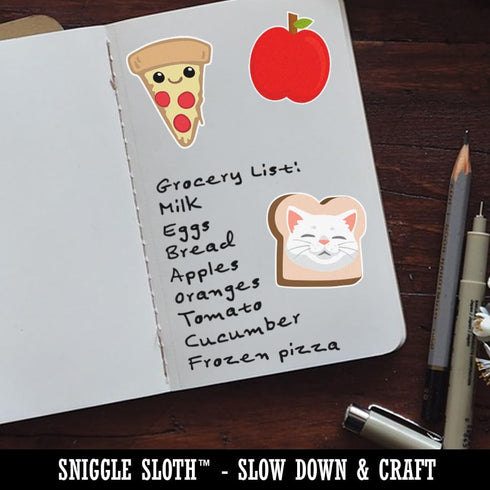 Grocery List:
Milk
Eggs
Bread
Apples
oranges
Tomato
Cucumber
Frozen pizza
SNIGGLE SLOTH™ - SLOW DOWN & CRAFT